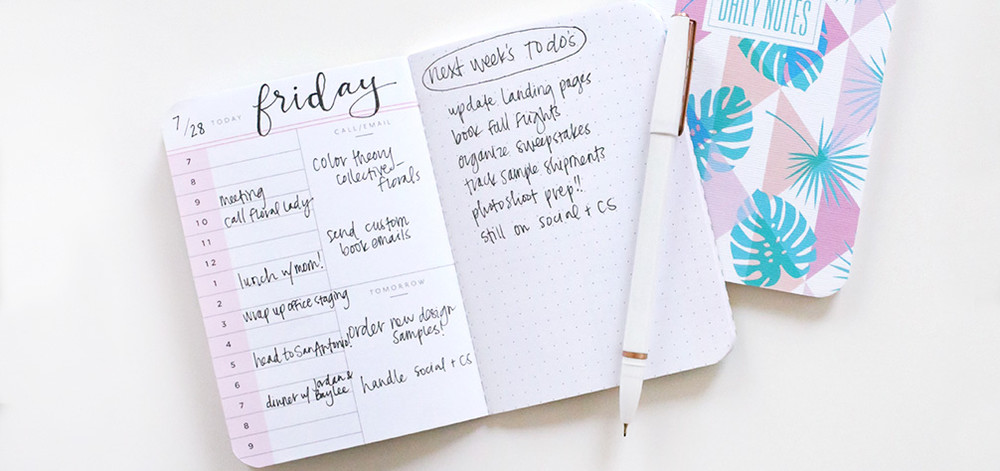 7/28 TODAY friday
7
8
9 meeting
10 call floral lady
11
12
1 lunch w/mom!
2
3 wrap up office staging
4
5 head to San Antonio!
6
7 dinner w/ Jordan & Baylee
8
9
CALL/EMAIL
color theory
collective-
florals
send custom
book emails
TOMORROW
order new design
samples!
handle social + CS
next week's TO do's
update landing pages
book fall flights
organize sweepstakes
track sample shipments
photoshoot prep!!
still on social + CS
DAILY NOTES